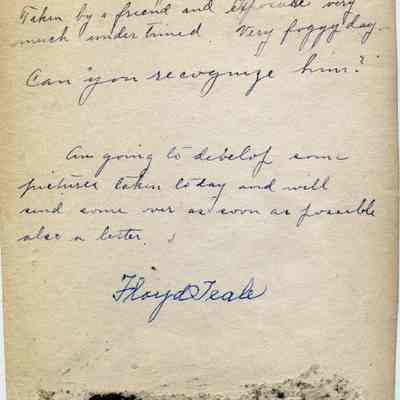 Taken by a friend and exposure very
much under timed. Very foggy day.
Can you recognize him?
Am going to develop some
pictures taken today and will
send some over as soon as possible
also a letter.
Floyd Teale